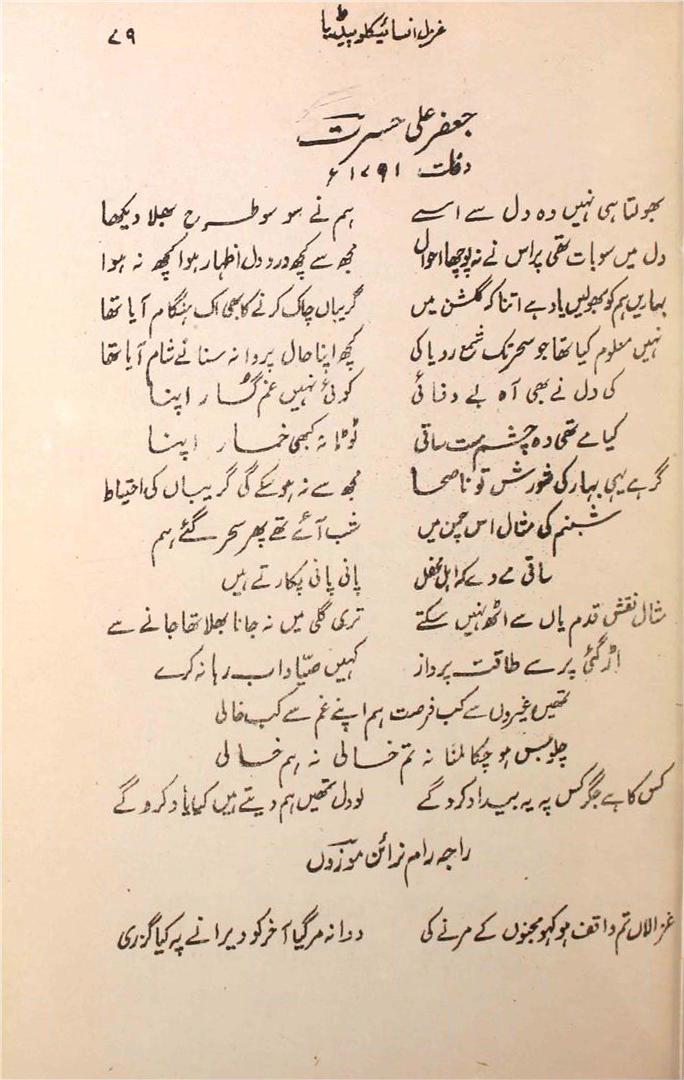 غزل انسائیکلوپیڈیا ۷۹
جعفر علی حسرت
وفات ۱۷۹۱ء
بھولتا ہی نہیں وہ دل سے اسے ہم نے سو سو طرح بھلا دیکھا
دل میں سو بات تھی پر اس نے نہ پوچھا احوال مجھ سے کچھ درد دل اظہار ہوا کچھ نہ ہوا
بہاریں ہم کو بھولیں یاد ہے اتنا کہ گلشن میں گریباں چاک کرنے کا بھی اک ہنگام آیا تھا
نہیں معلوم کیا تھا جو سحر تک شمع رویا کی کچھ اپنا حال پروانہ سنانے شام آیا تھا
کی دل نے بھی آہ بے وفائی کوئی نہیں غم گسار اپنا
کیا مے تھی وہ چشم مست ساقی ٹوٹا نہ کبھی خمار اپنا
گر ہے یہی بہار کی شورش تو ناصحا مجھ سے نہ ہو سکے گی گریباں کی احتیاط
شبنم کی مثال اس چمن میں شب آئے تھے پھر سحر گئے ہم
ساقی مے دے کہ اہل محفل پانی پانی پکارتے ہیں
مثال نقش قدم یاں سے اٹھ نہیں سکتے تری گلی میں نہ جانا بھلا تھا جانے سے
اڑ گئی پر سے طاقت پرواز کہیں صیاد اب رہا نہ کرے
تمھیں غیروں سے کب فرصت ہم اپنے غم سے کب خالی
چلو بس ہو چکا ملنا نہ تم خالی نہ ہم خالی
کس کا ہے جگر کس پہ یہ بیداد کرو گے لو دل تمھیں ہم دیتے ہیں کیا یاد کرو گے
راجہ رام نرائن موزوں
غزالاں تم تو واقف ہو کہو مجنوں کے مرنے کی دوانہ مر گیا آخر کو ویرانے پہ کیا گزری